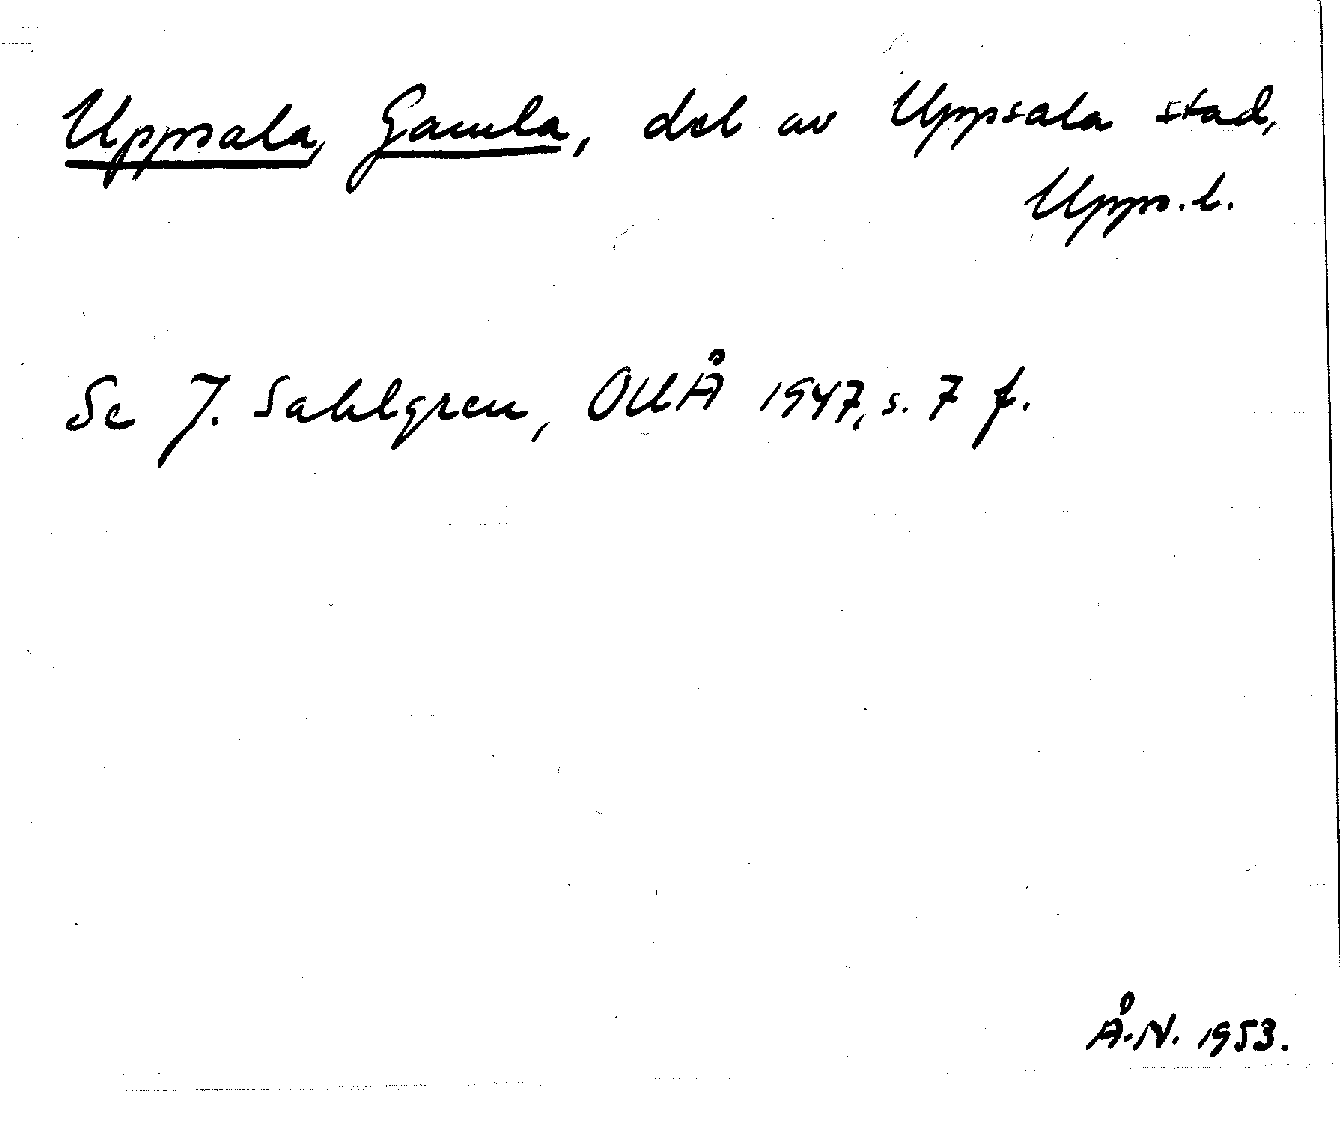 Uppsala, Gamla, del av Uppsala stad,
Upps. l.
Se J. Sahlgren, OUÅ 1947, s. 7 f.
Å.N. 1953.